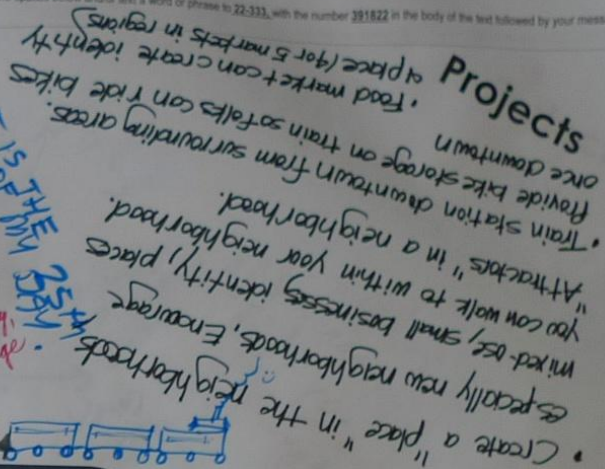 or phrase to 22-333, with the number 391822 in the body of the text followed by your mess
Projects
• Create a "place" in the neighborhoods
especially new neighborhoods, Encourage
mixed-use, small businesses, identity, places
you can walk to within your neighborhood.
"Attractors" in a neighborhood.
• Train station downtown from surrounding areas.
Provide bike storage on train so folks can ride bikes
once downtown
• Food market can create identity
a place (for 5 markets in regions)
IS THE 25th
OF MY DAY.